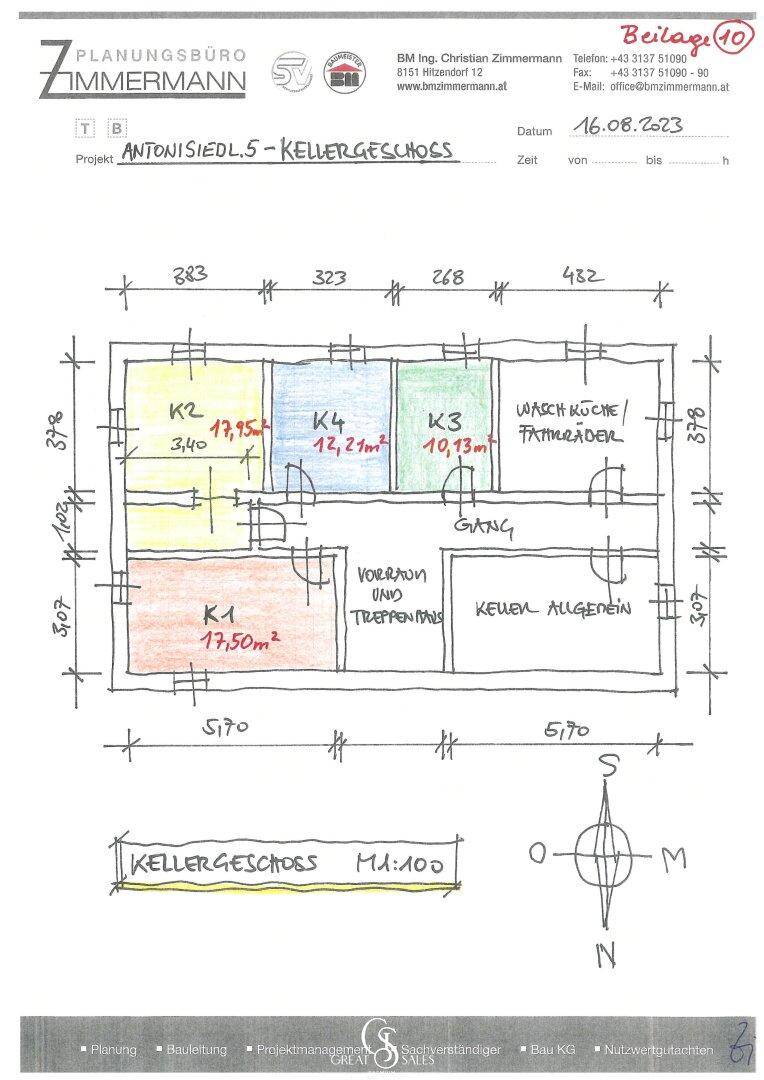 Beilage 10
PLANUNGSBÜRO
ZIMMERMANN
SV
BAUMEISTER
BM
BM Ing. Christian Zimmermann
8151 Hitzendorf 12
www.bmzimmermann.at
Telefon: +43 3137 51090
Fax: +43 3137 51090 - 90
E-Mail: office@bmzimmermann.at
T B
Datum 16.08.2023
Projekt ANTONISIEDL.5 - KELLERGESCHOSS
Zeit von bis h
383 323 268 432
378
K2
17,95m²
3,40
K4
12,21m²
K3
10,13m²
WASCHKÜCHE/
FAHRRÄDER
378
1,02
GANG
3,07
K1
17,50m²
VORRAUM
UND
TREPPENHAUS
KELLER ALLGEMEIN
3,07
5,70 5,70
KELLERGESCHOSS M1:100
S
O
N
▪ Planung ▪ Bauleitung ▪ Projektmanagement ▪ Sachverständiger ▪ Bau KG ▪ Nutzwertgutachten
GS
GREAT SALES